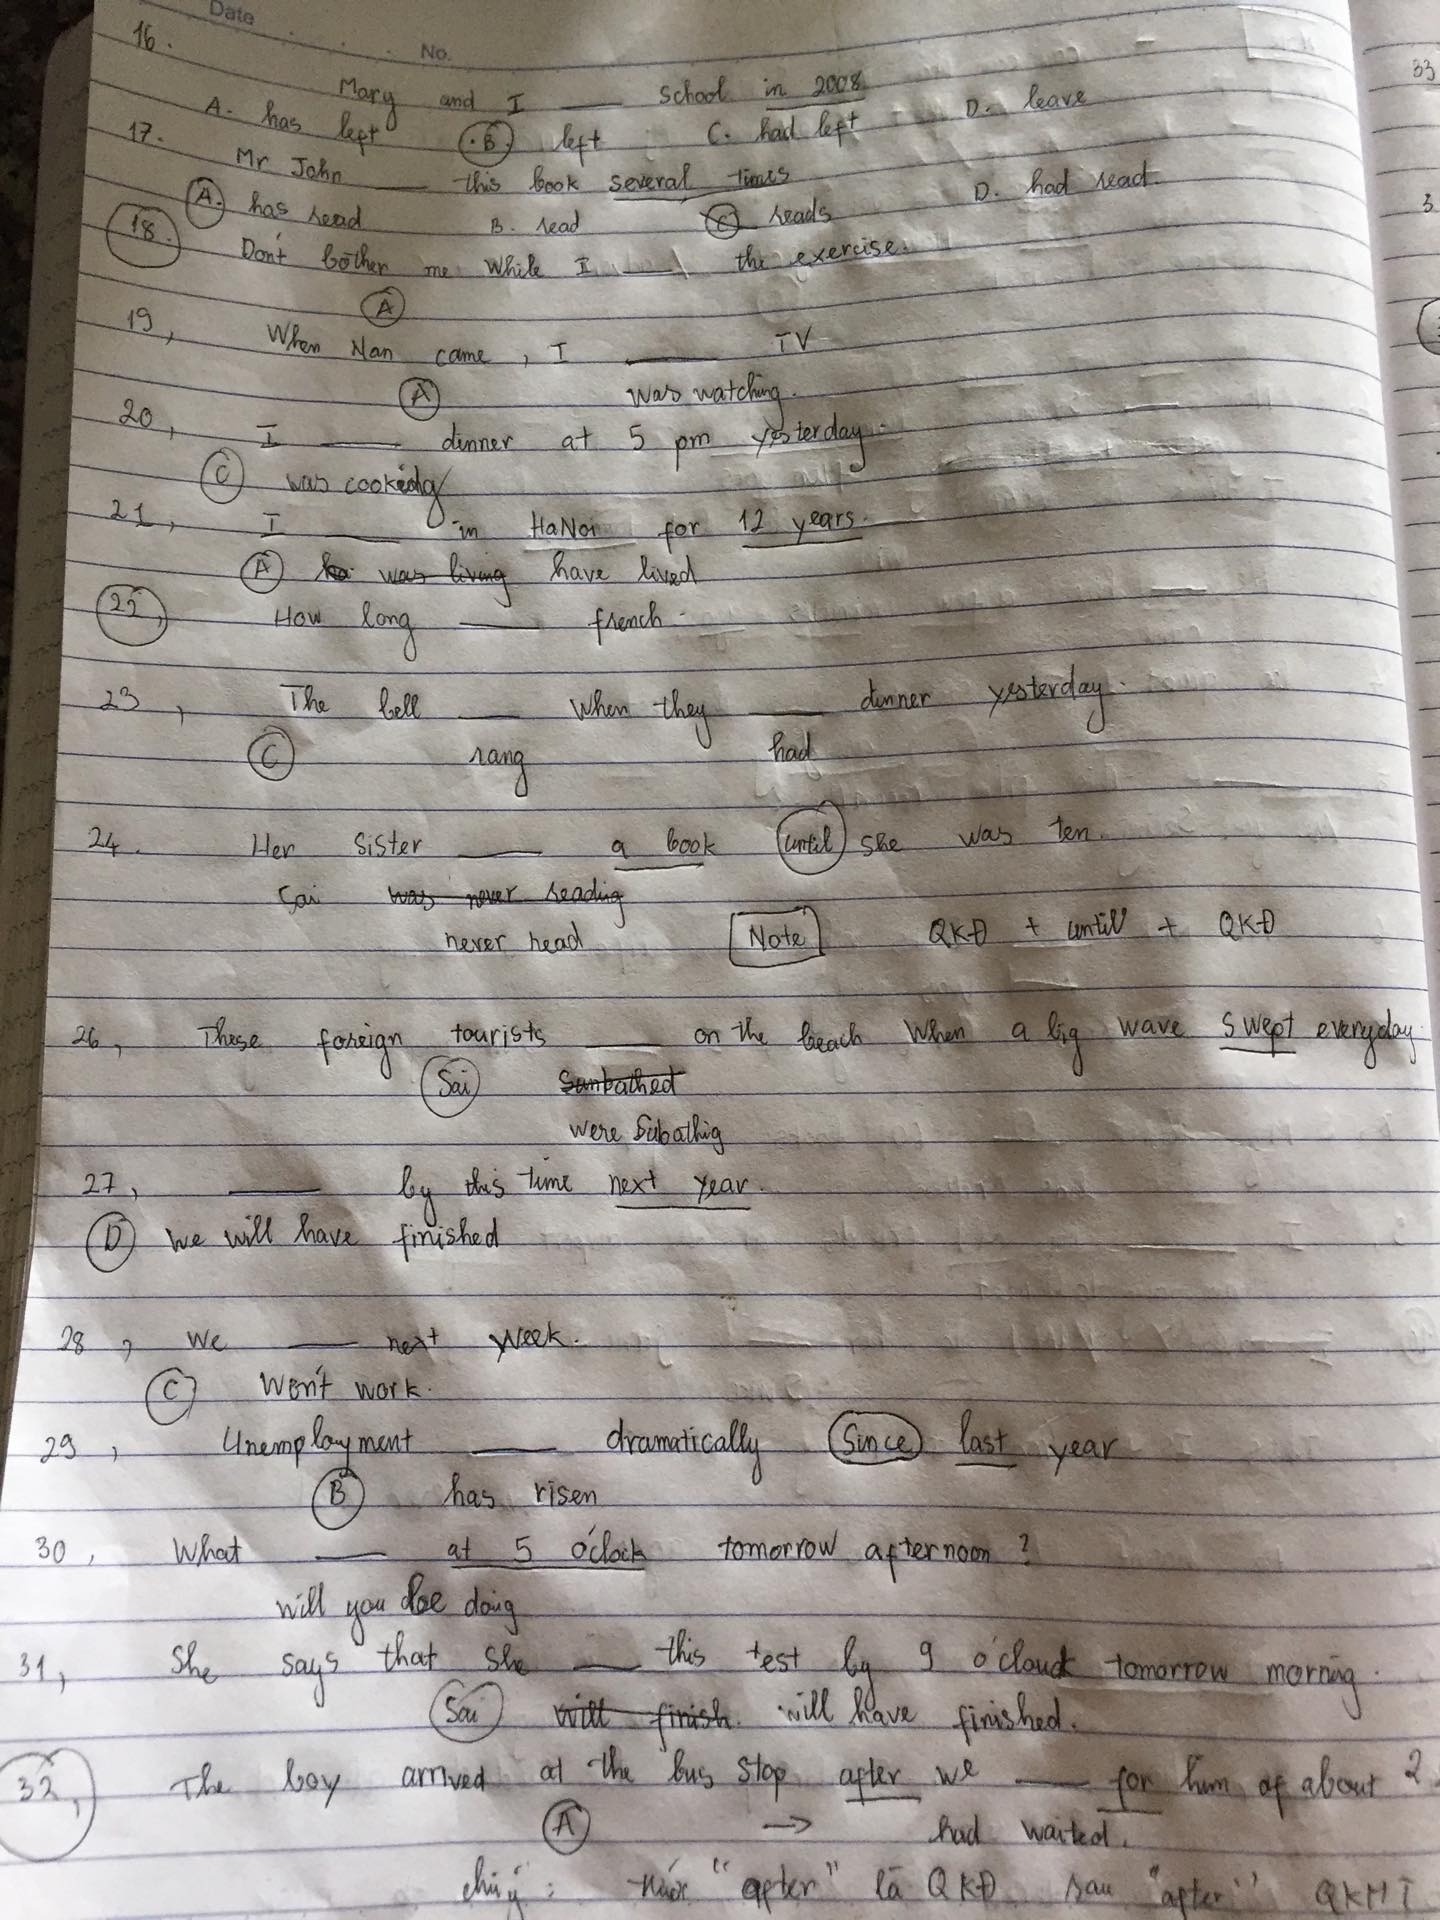 Date
No.
16.
Mary and I ___ School in 2008
A. has left (B.) left C. had left D. leave
17.
Mr John ___ this book several times
(A.) has read B. read (C) reads D. had read.
18.
Don't bother me while I ___ the exercise.
(A)
19, When Nan came, I ___ TV
(A) was watching.
20, I ___ dinner at 5 pm yesterday.
(C) was cooking
21, I ___ in HaNoi for 12 years.
(A) was living have lived
22, How long ___ french
23, The bell ___ When they ___ dinner yesterday.
(C) rang had
24. Her Sister ___ a book until she was ten.
Sai was never reading
never read Note QKĐ + until + QKĐ
26, These foreign tourists ___ on the beach When a big wave swept everyday
Sai Sunbathed
were Subathig
27, ___ by this time next year.
(D) We will have finished
28, We ___ next week.
(C) Won't work.
29, Unemployment ___ dramatically Since last year
(B) has risen
30, What ___ at 5 o'clock tomorrow afternoon?
will you be doing
31, She says that she ___ this test by 9 o'clouck tomorrow morning.
Sai will finish. will have finished.
32, The boy arrived at the bus stop after we ___ for him of about 2
(A) → had waited.
chú ý: trước "after" là QKĐ sau "after" QKHT
33
3